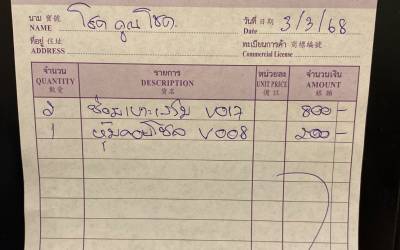 นาม 寶號 โชคคูณโชค วันที่ 日期 3/3/68
NAME Date
ที่อยู่ 住址 ทะเบียนการค้า 商標編號
ADDRESS Commercial License
จำนวน รายการ หน่วยละ จำนวนเงิน
QUANTITY DESCRIPTION UNIT PRICE AMOUNT
數量 貨名 價訂 銀額
2 ซ่อมเบาะ V017 800-
1 V008 200-